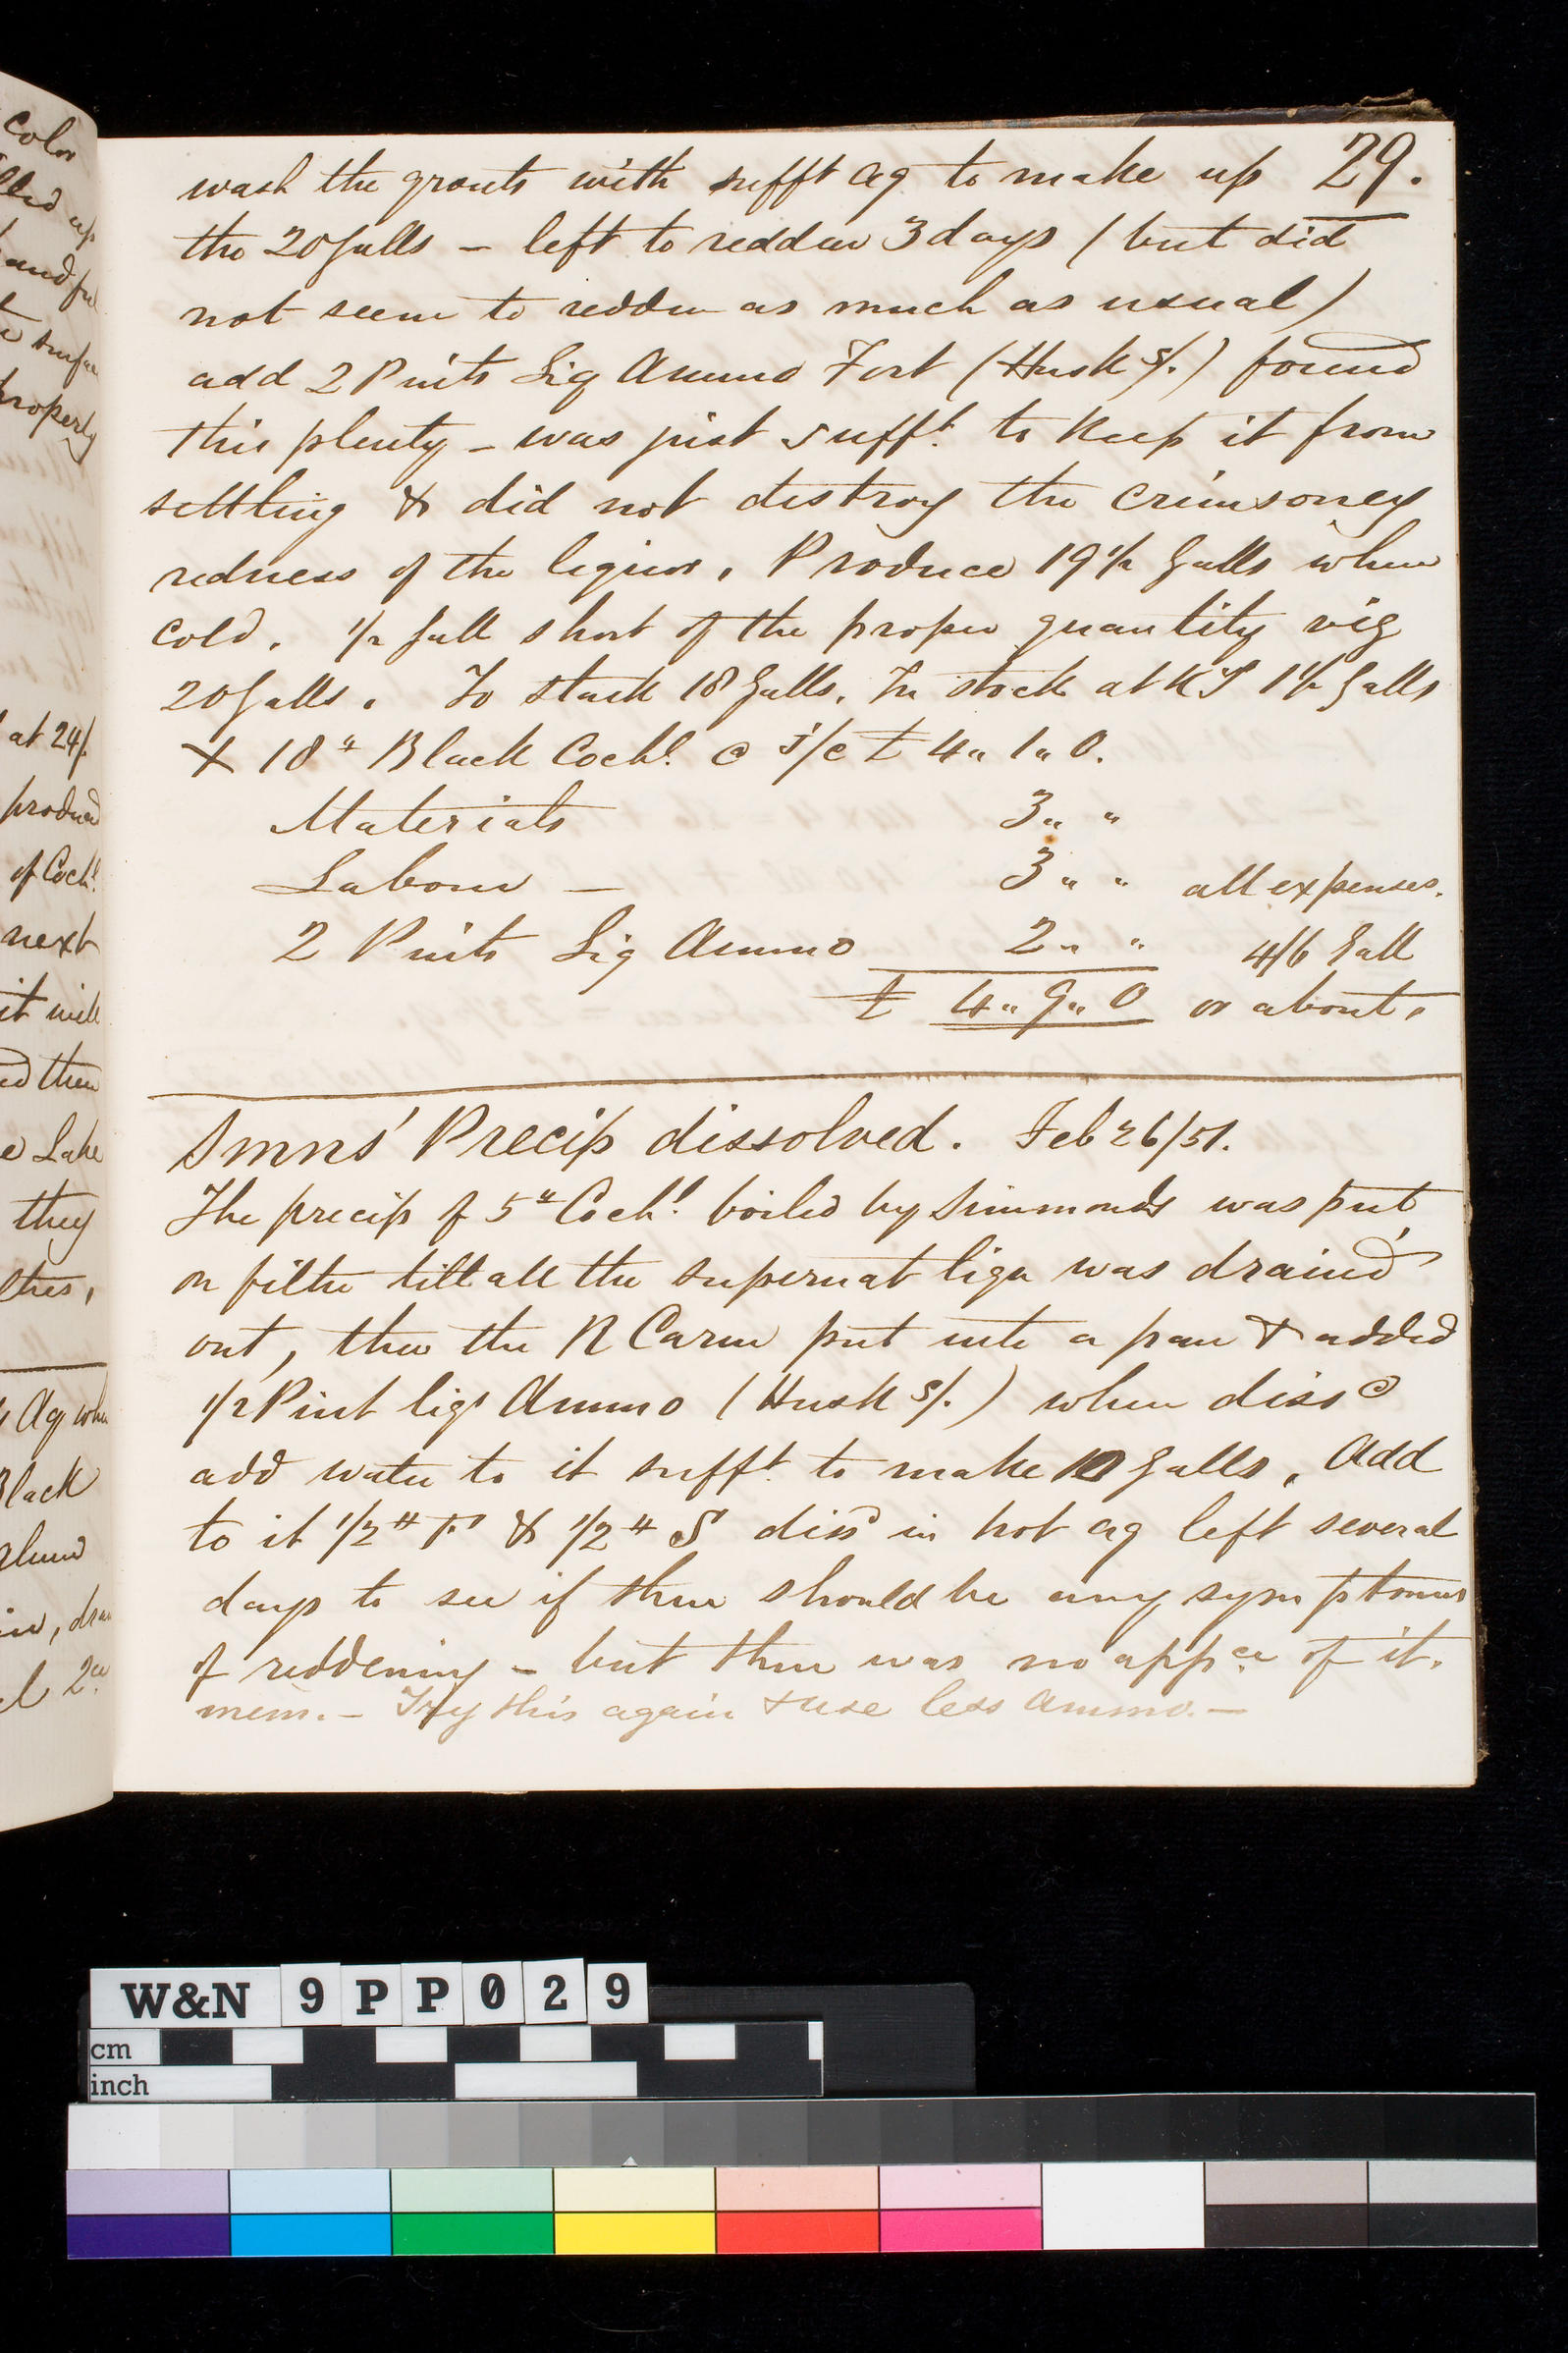 color
up
handful
surface
properly
at 24/
produced
of Coch!
next
it will
then
Lake
they
Aq when
Black
2
wash the grouts with sufft aq to make up 29.
the 20 Galls – left to redden 3 days (but did
not seem to redden as much as usual)
add 2 Pints Liq Ammo Fort (Husk's/.) found
this plenty – was just sufft to keep it from
settling & did not destroy the crimsoney
redness of the liquor. Produce 19½ Galls when
cold. ½ Gall short of the proper quantity viz
20 Galls. To stock 18 Galls. In stock at KT 1½ Galls
X 18# Black Coch! @ £ 4" 1" 0.
Materials 3" "
Labour – 3" " all expenses.
2 Pints Liq Ammo 2" " 4/6 Gall
£ 4" 9" 0 or about.
Smns' Precip dissolved. Feb 26/51.
The precip of 5# Coch! boiled by Simmonds was put
on filter till all the supernat liqr was drained
out, then the R Carm put into a pan & added
1/2 Pint liqr Ammo (Husk s/.) when dissd
add water to it sufft to make 10 Galls. Add
to it 1/2# T & 1/2# S dissd in hot aq left several
days to see if there should be any symptoms
of reddening – but there was no appce of it.
mem. – Try this again & use less Ammo. –
W&N 9PP029
cm
inch